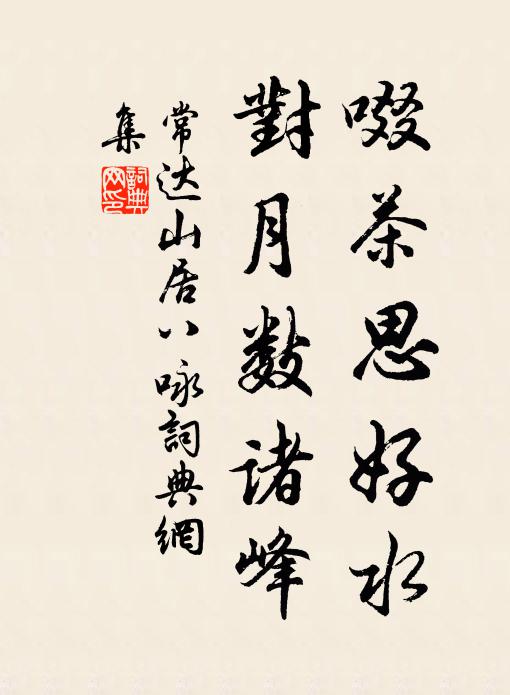 啜茶思好水
對月数诸峰
常达山居八咏詞典網
集
詞典网印